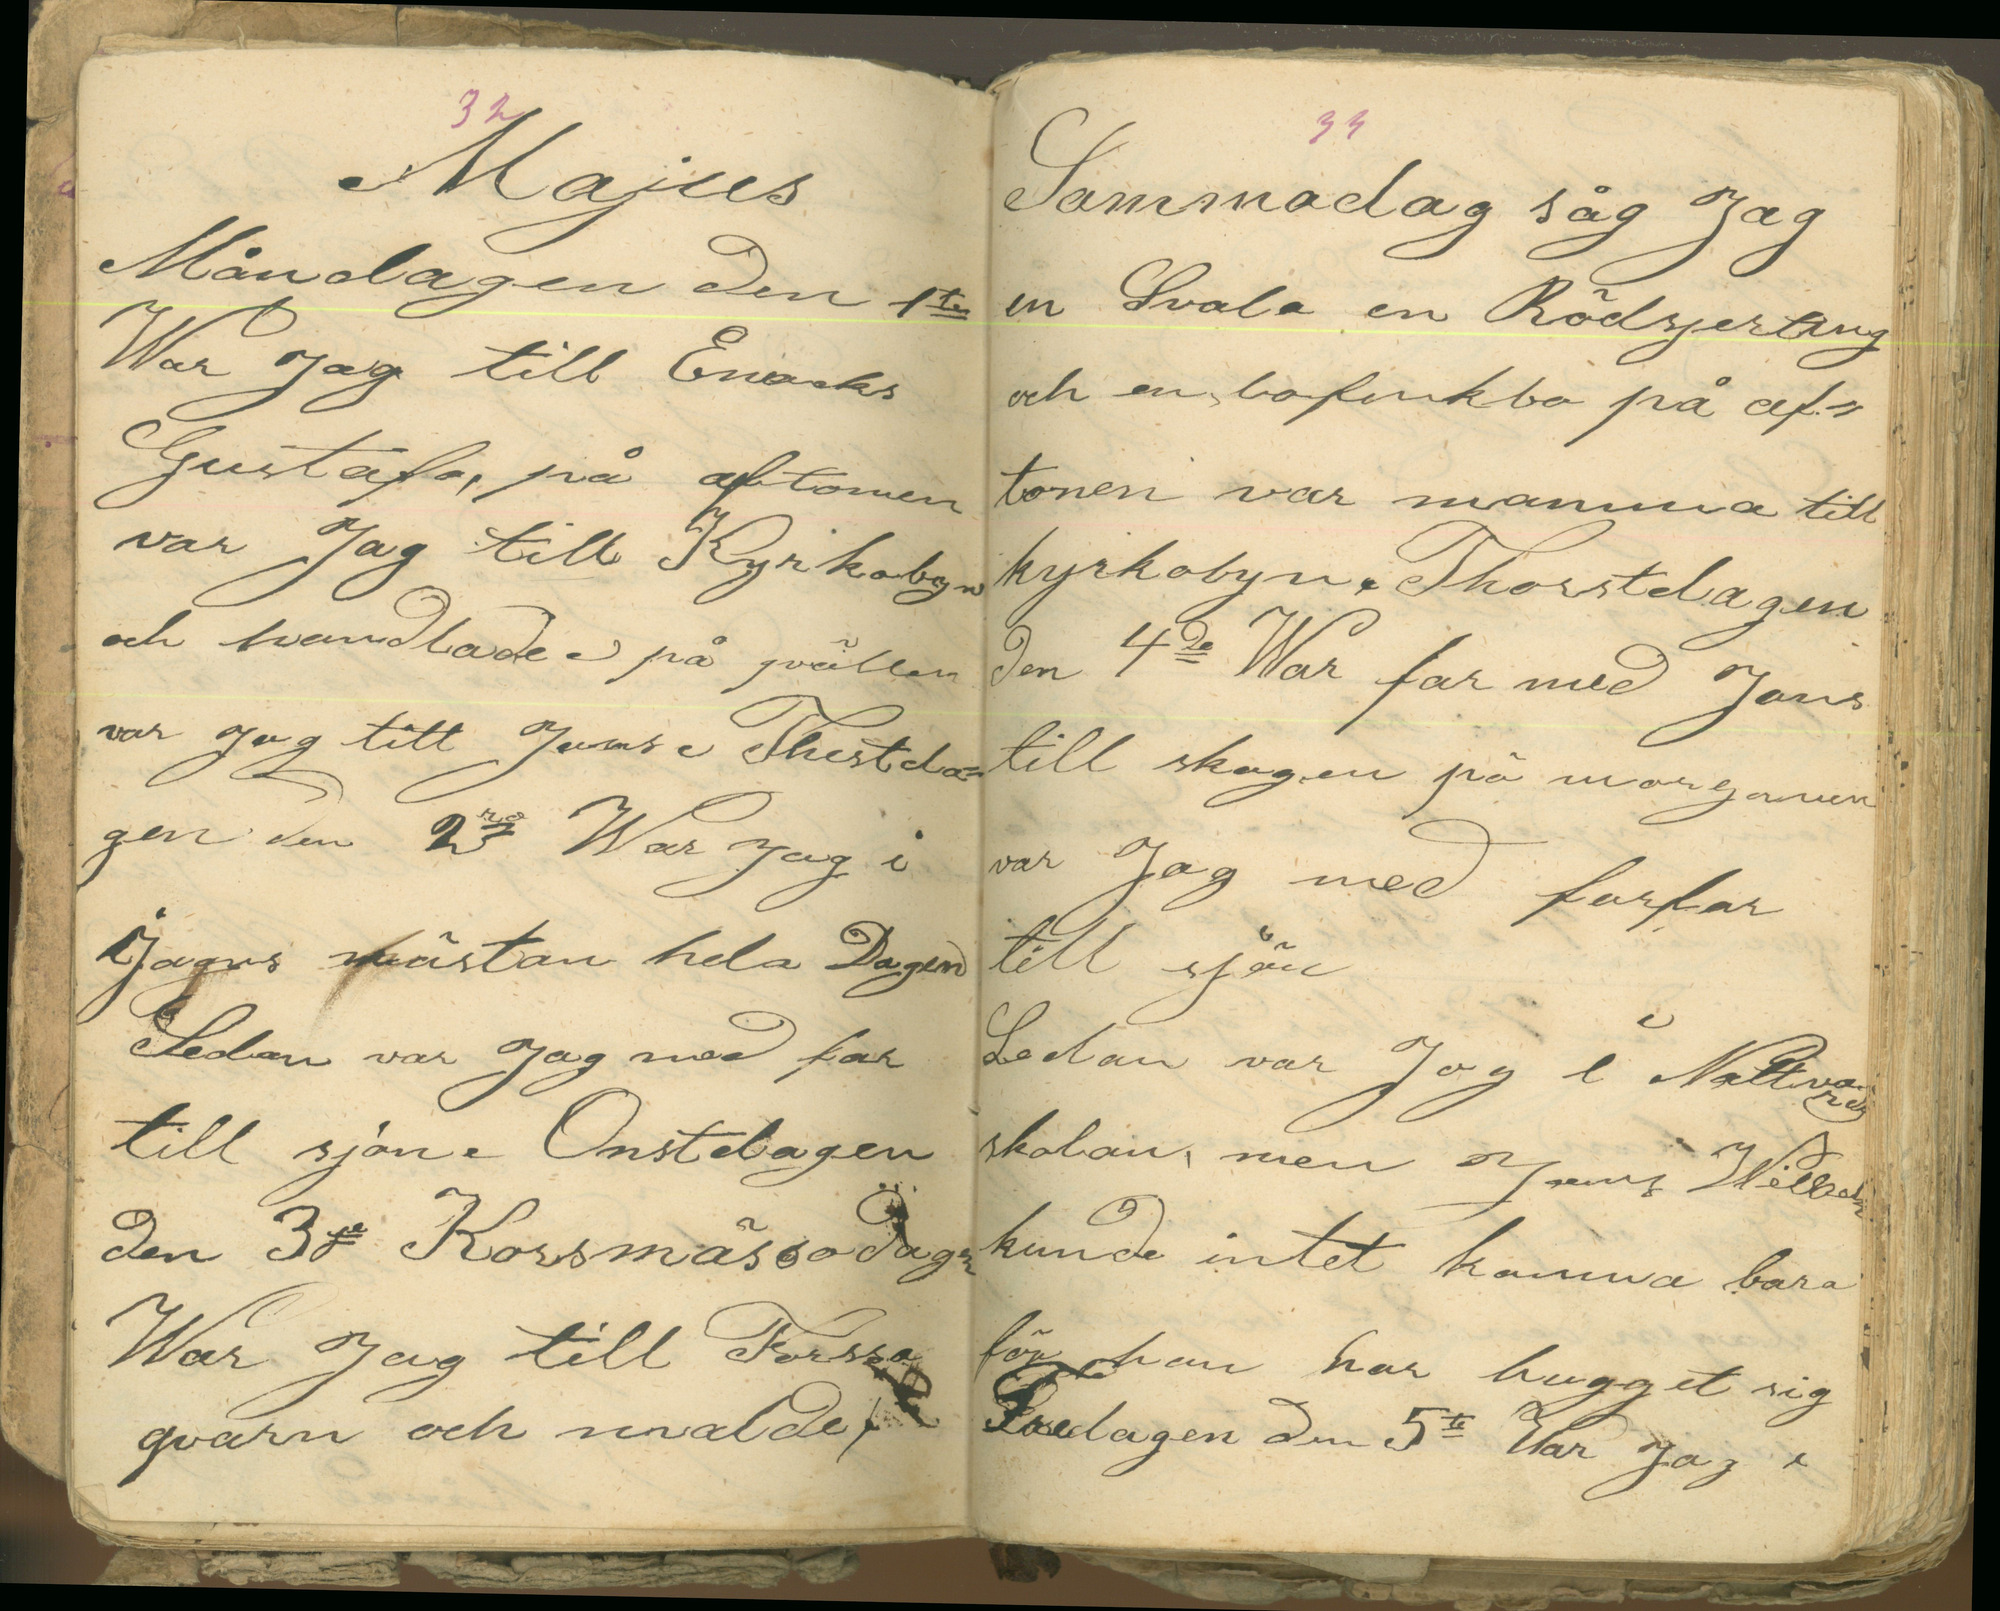 32
Majus
Måndagen den 1ta
War Jag till Enacks
Gustafs, på aftonen
var Jag till Kyrkobyn
och handlade på qvällen
var jag till Jans Thestda=
gen den 2ra War Jag i
Jagars nästan hela Dagen
Sedan var Jag med far
till sjön. Onstdagen
den 3je Korsmässodagen
War Jag till Forssa
qvarn och malde,
33
Sammadag såg Jag
en Svala en Rödsjertung
och en bofinkbo på af=
tonen var mamma till
kyrkobyn. Thorstdagen
den 4de War far med Jans
till skogen på morgonen
var Jag med farfar
till sjön
Sedan var Jag i Nattvards
skolan, men Jans
kunde intet komma bara
för han har hugget sig
Fredagen den 5te War Jag i